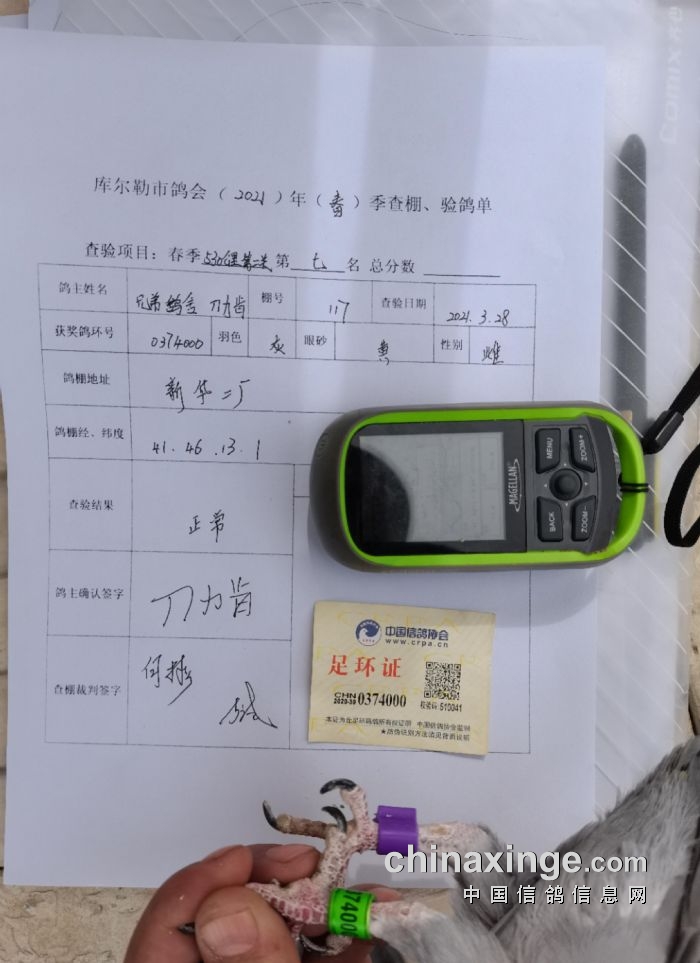 Comix
库尔勒市鸽会（2021）年（春）季查棚、验鸽单
查验项目：春季530公里第二关 第 七 名 总分数
鸽主姓名 兄弟鸽舍 刀力肯 棚号 117 查验日期 2021.3.28
获奖鸽环号 0374000 羽色 灰 眼砂 黄 性别 雌
鸽棚地址 新华二厂
鸽棚经、纬度 41.46.13.1
查验结果 正常
鸽主确认签字 刀力肯
查棚裁判签字
MAGELLAN
MENU
ZOOM+
BACK
ZOOM-
中国信鸽协会
www.crpa.cn
足环证
CHN
2020-30 0374000
校验码: 510041
本证为此足环鸽的所有权证明 中国信鸽协会监制
★防伪识别方法请见背面说明
74000
chinaxinge.com
中国信鸽信息网